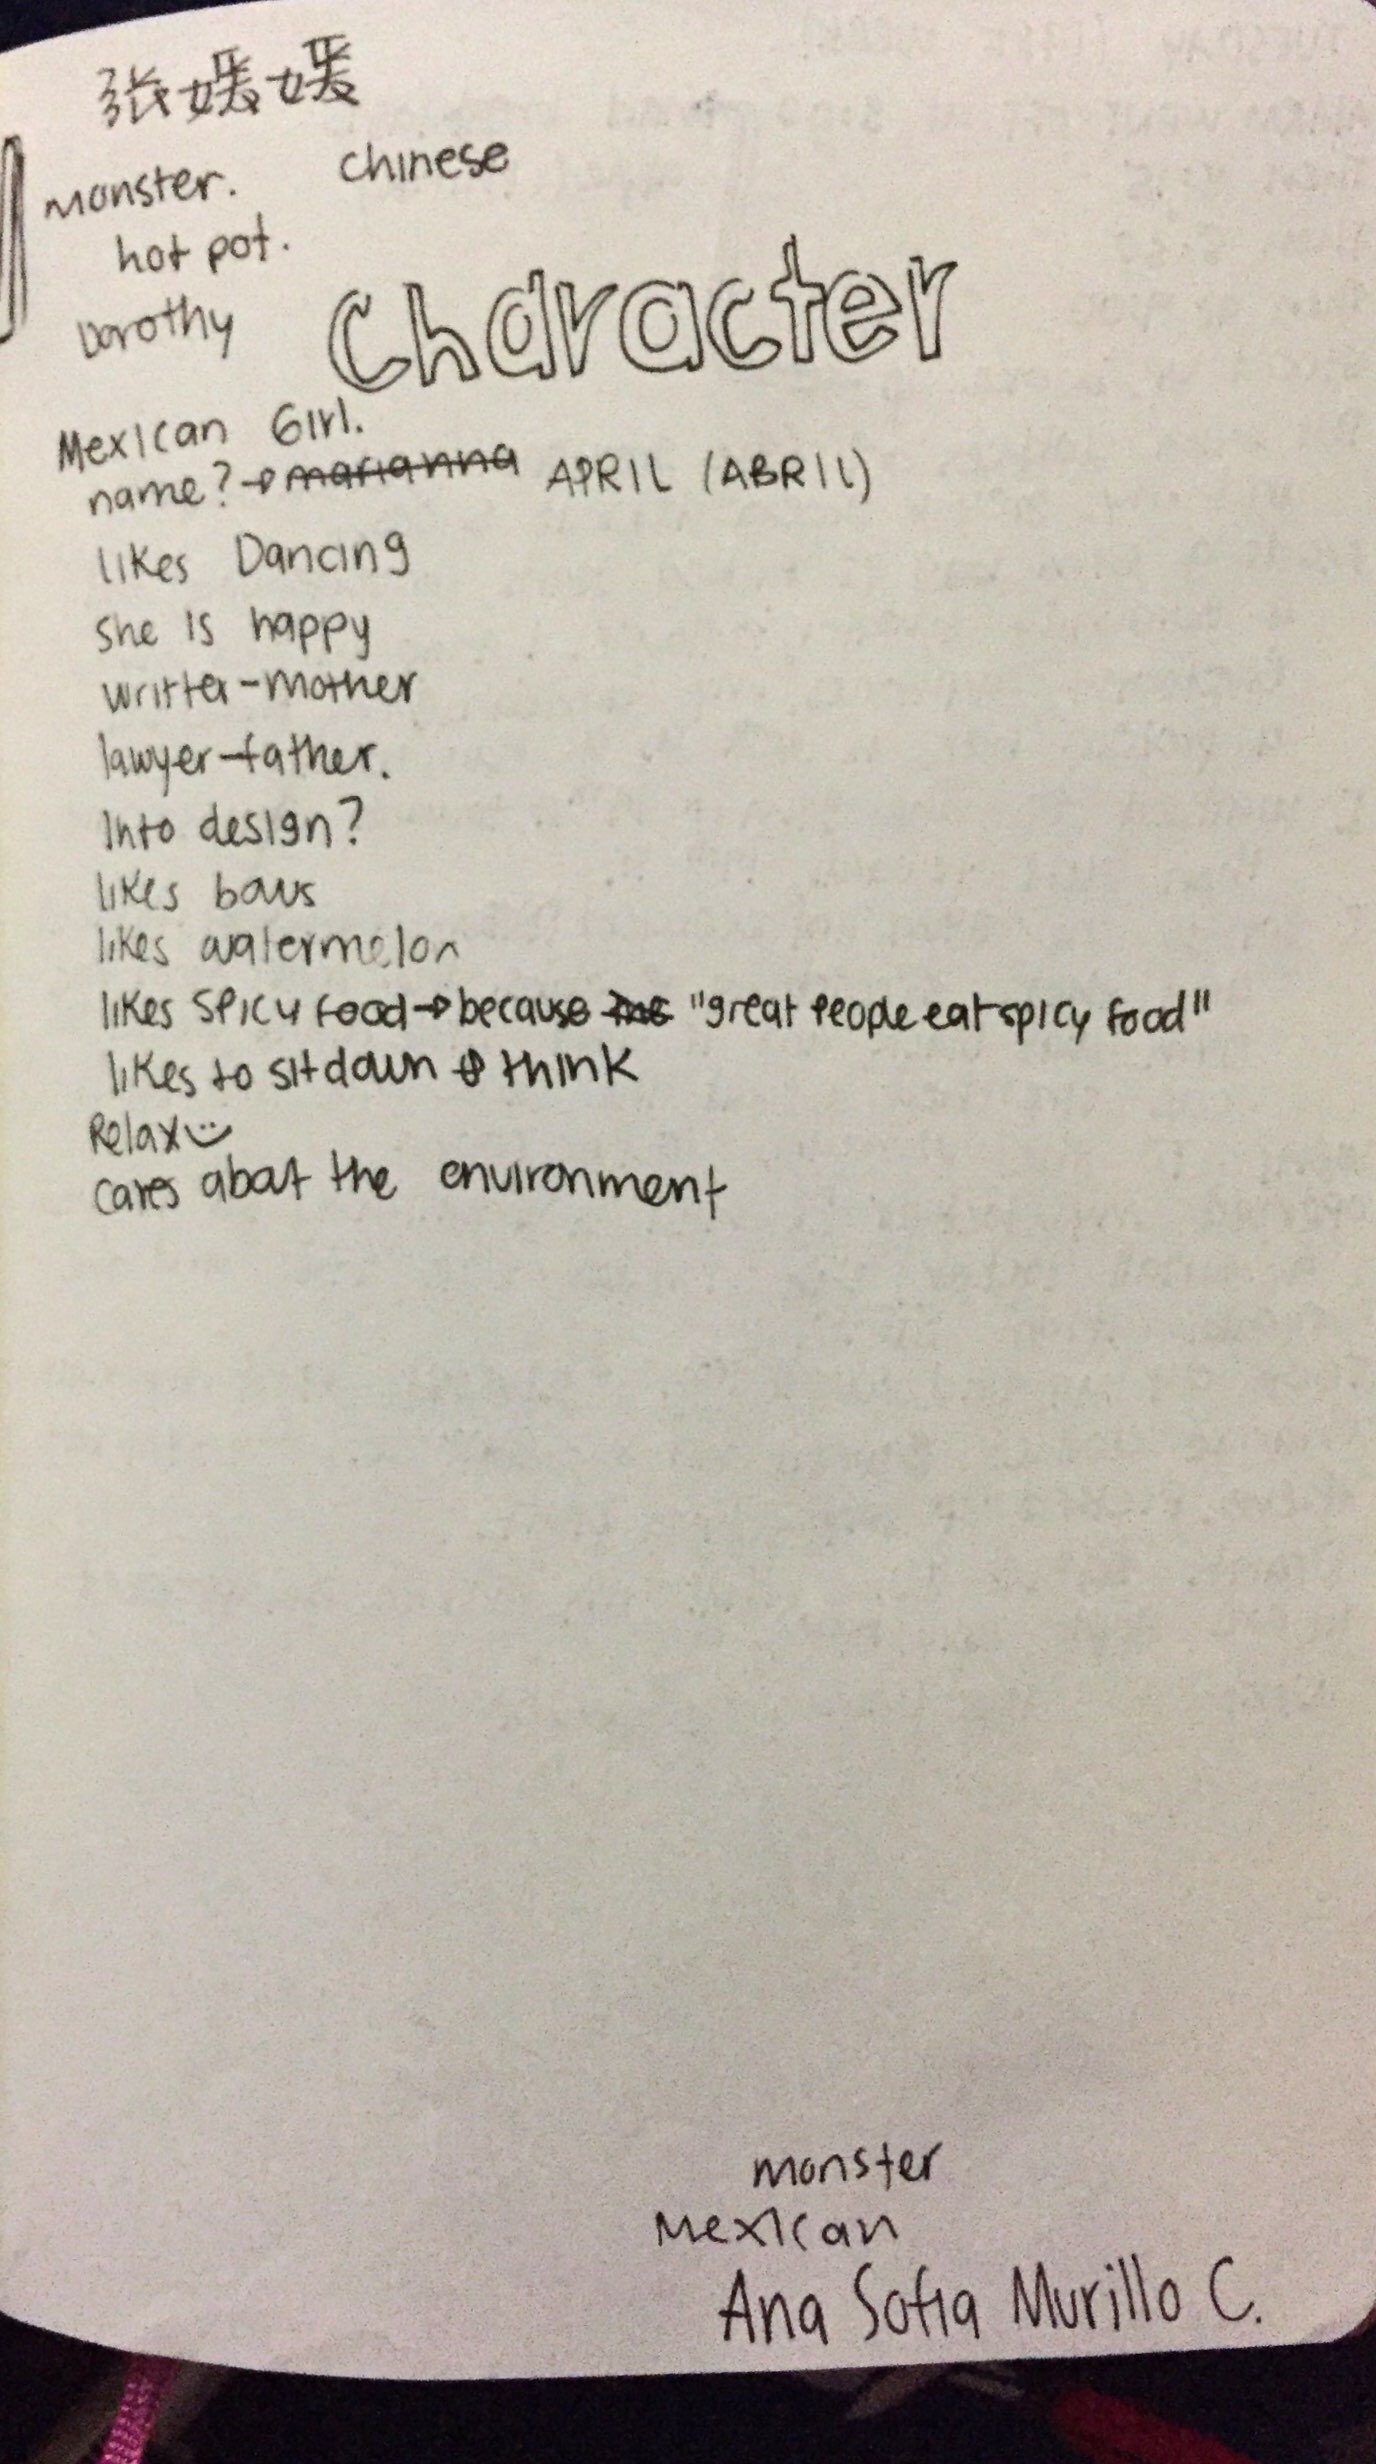 张媛媛
monster. Chinese
hot pot.
Dorothy
Character
Mexican Girl.
name?→marianna APRIL (ABRIL)
likes Dancing
she is happy
writter-mother
lawyer-father.
Into design?
likes baus
likes watermelon
likes spicy food→because "great people eat spicy food"
likes to sit down & think
Relax
cares about the environment
monster
Mexican
Ana Sofia Murillo C.